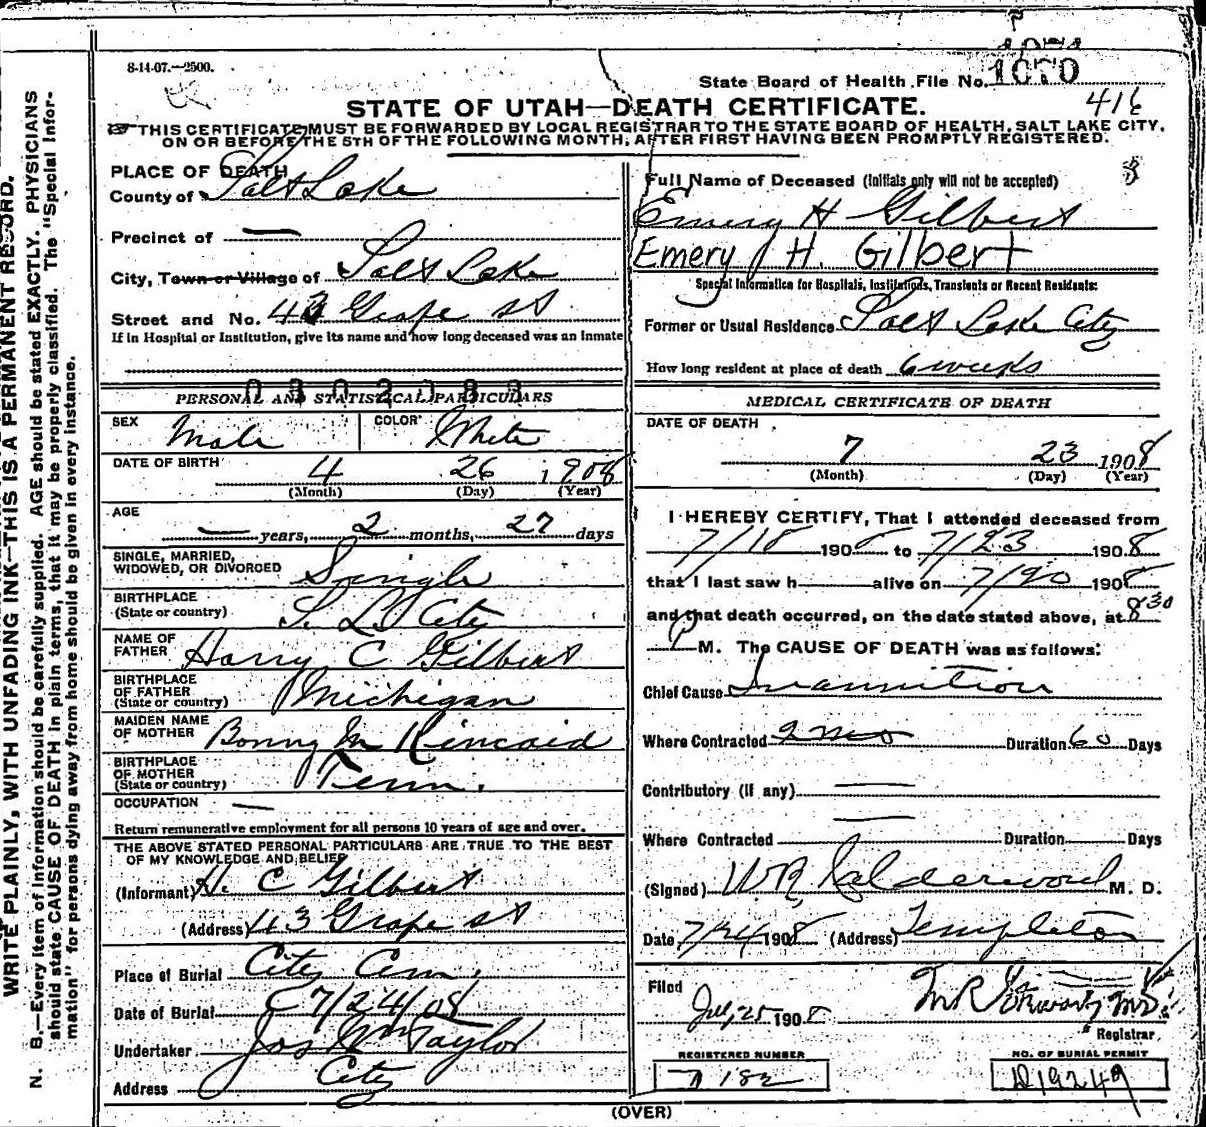 WRITE PLAINLY, WITH UNFADING INK—THIS IS A PERMANENT RECORD.
N. B.—Every item of information should be carefully supplied. AGE should be stated EXACTLY. PHYSICIANS
should state CAUSE OF DEATH in plain terms, that it may be properly classified. The "Special Infor-
mation" for persons dying away from home should be given in every instance.
8-14-07.—2500.
State Board of Health File No. 1070
416
STATE OF UTAH—DEATH CERTIFICATE.
THIS CERTIFICATE MUST BE FORWARDED BY LOCAL REGISTRAR TO THE STATE BOARD OF HEALTH, SALT LAKE CITY,
ON OR BEFORE THE 5TH OF THE FOLLOWING MONTH, AFTER FIRST HAVING BEEN PROMPTLY REGISTERED.
PLACE OF DEATH
County of Salt Lake
Precinct of —
City, Town or Village of Salt Lake
Street and No. 43 Grape st
If in Hospital or Institution, give its name and how long deceased was an inmate
PERSONAL AND STATISTICAL PARTICULARS
SEX Male COLOR White
DATE OF BIRTH 4 26 1908
(Month) (Day) (Year)
AGE
— years, 2 months, 27 days
SINGLE, MARRIED,
WIDOWED, OR DIVORCED Single
BIRTHPLACE
(State or country) S. L. City
NAME OF
FATHER Harry C Gilbert
BIRTHPLACE
OF FATHER
(State or country) Michigan
MAIDEN NAME
OF MOTHER Bonny M Kincaid
BIRTHPLACE
OF MOTHER
(State or country) Tenn.
OCCUPATION —
Return remunerative employment for all persons 10 years of age and over.
THE ABOVE STATED PERSONAL PARTICULARS ARE TRUE TO THE BEST
OF MY KNOWLEDGE AND BELIEF
(Informant) H. C Gilbert
(Address) 43 Grape st
Place of Burial City Cem.
Date of Burial 7/24/08
Undertaker Jos Wm Taylor
Address City
Full Name of Deceased (Initials only will not be accepted)
Emery H Gilbert
Emery H. Gilbert
Special Information for Hospitals, Institutions, Transients or Recent Residents:
Former or Usual Residence Salt Lake City
How long resident at place of death 6 weeks
MEDICAL CERTIFICATE OF DEATH
DATE OF DEATH
7 23 1908
(Month) (Day) (Year)
I HEREBY CERTIFY, That I attended deceased from
7/18 1908 to 7/23 1908
that I last saw h alive on 7/20 1908
and that death occurred, on the date stated above, at 8 30
P M. The CAUSE OF DEATH was as follows:
Chief Cause Inannition
Where Contracted 2 mo Duration 60 Days
Contributory (If any) —
Where Contracted — Duration Days
(Signed) W R Calderwood M. D.
Date 7/24 1908 (Address) Templeton
Filed
Jul, 25 1908
Registrar
REGISTERED NUMBER
NO. OF BURIAL PERMIT
182
D19249
(OVER)